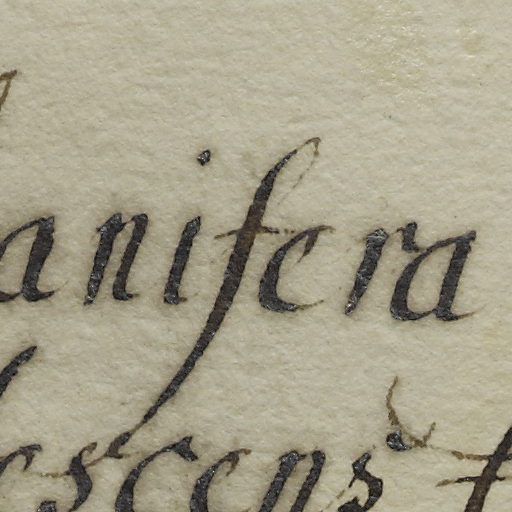 anifera
escens